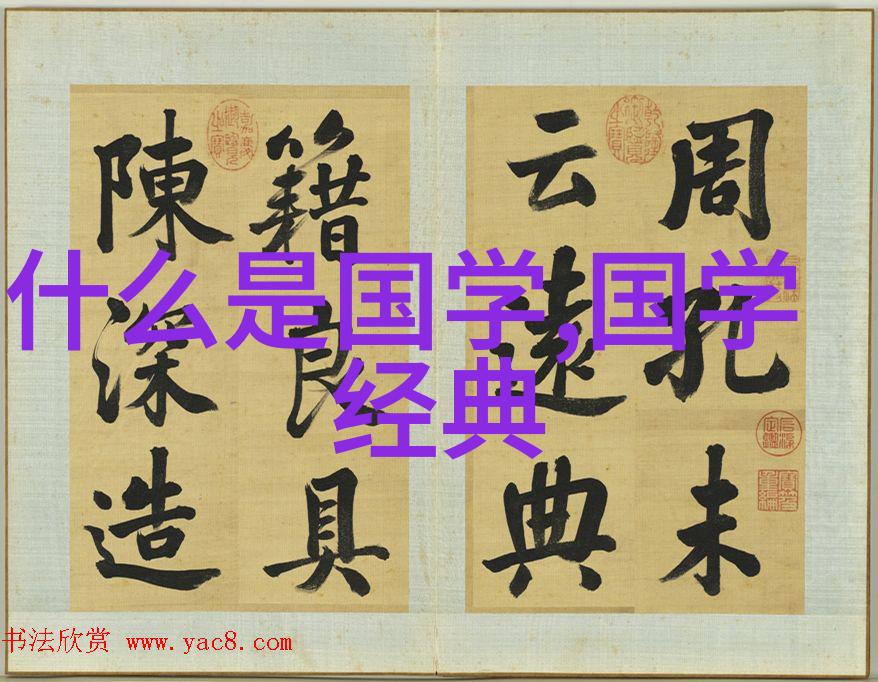 什么是国学,国学
经典
周孔未
云遠典
籍良具
陳深造
书法欣赏 www.yac8.com